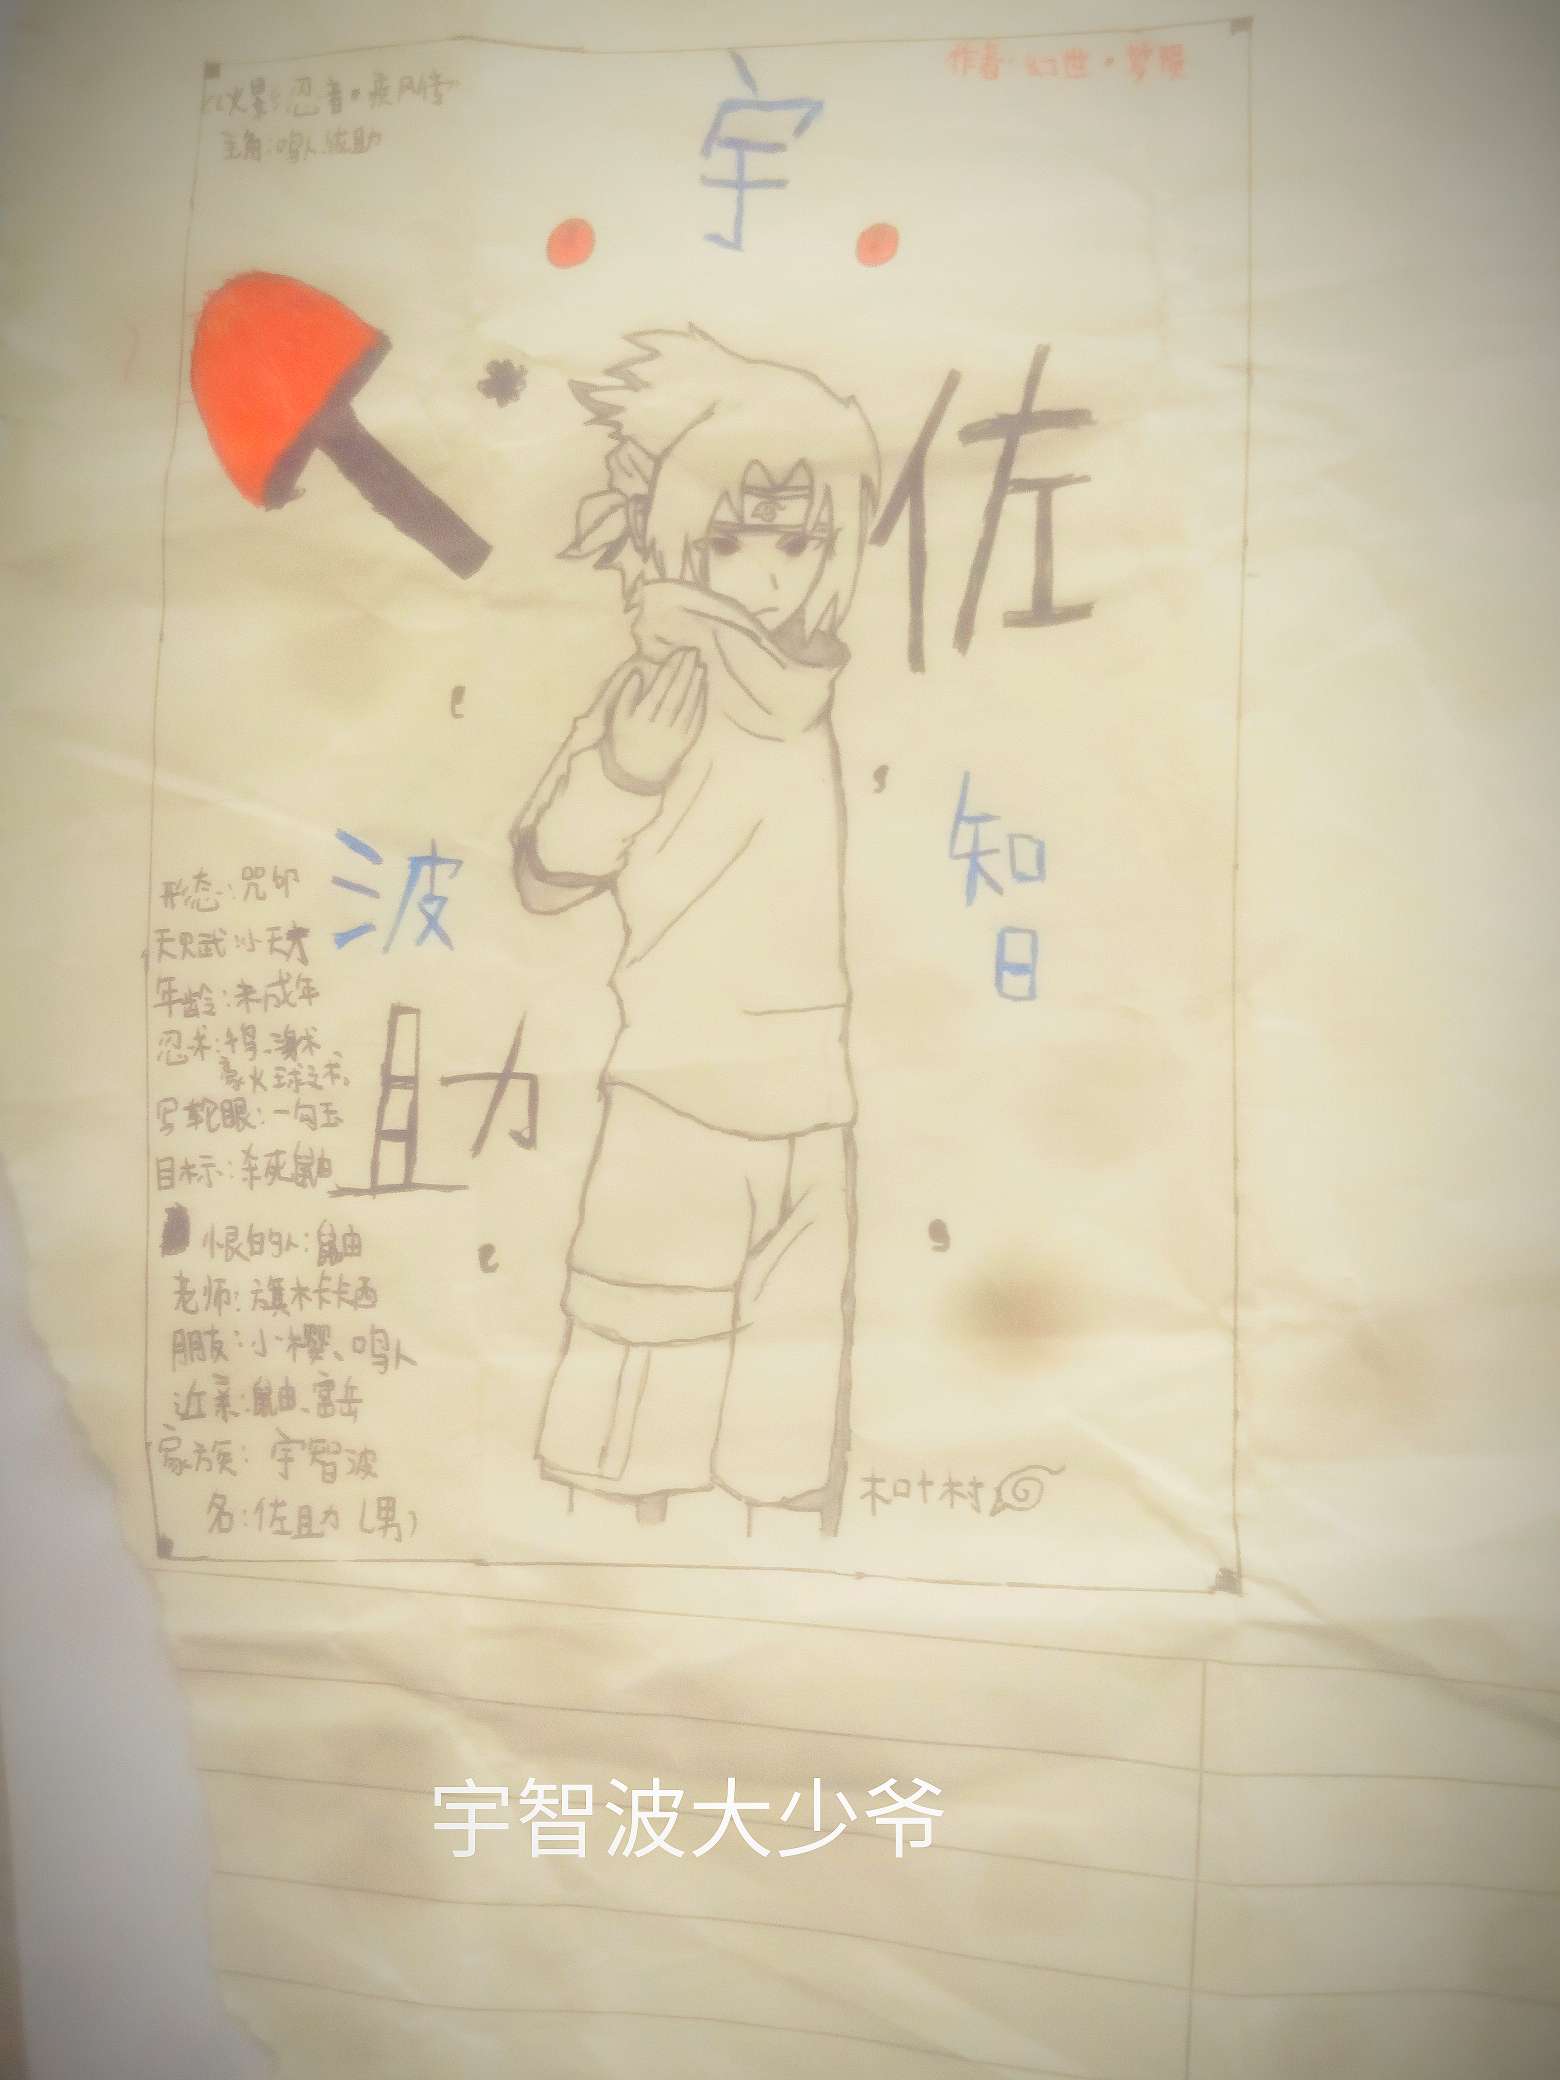 火影忍者·疾风传
主角:鸣人.佐助
作者·幻世·
宇
佐
智
波
助
形态:咒印
天赋:小天才
年龄:未成年
忍术:千鸟、
豪火球之术、
写轮眼:一勾玉
目标:杀死鼬
恨的人:鼬
老师:旗木卡卡西
朋友:小樱、鸣人
近亲:鼬、富岳
家族:宇智波
名:佐助(男)
木叶村
宇智波大少爷